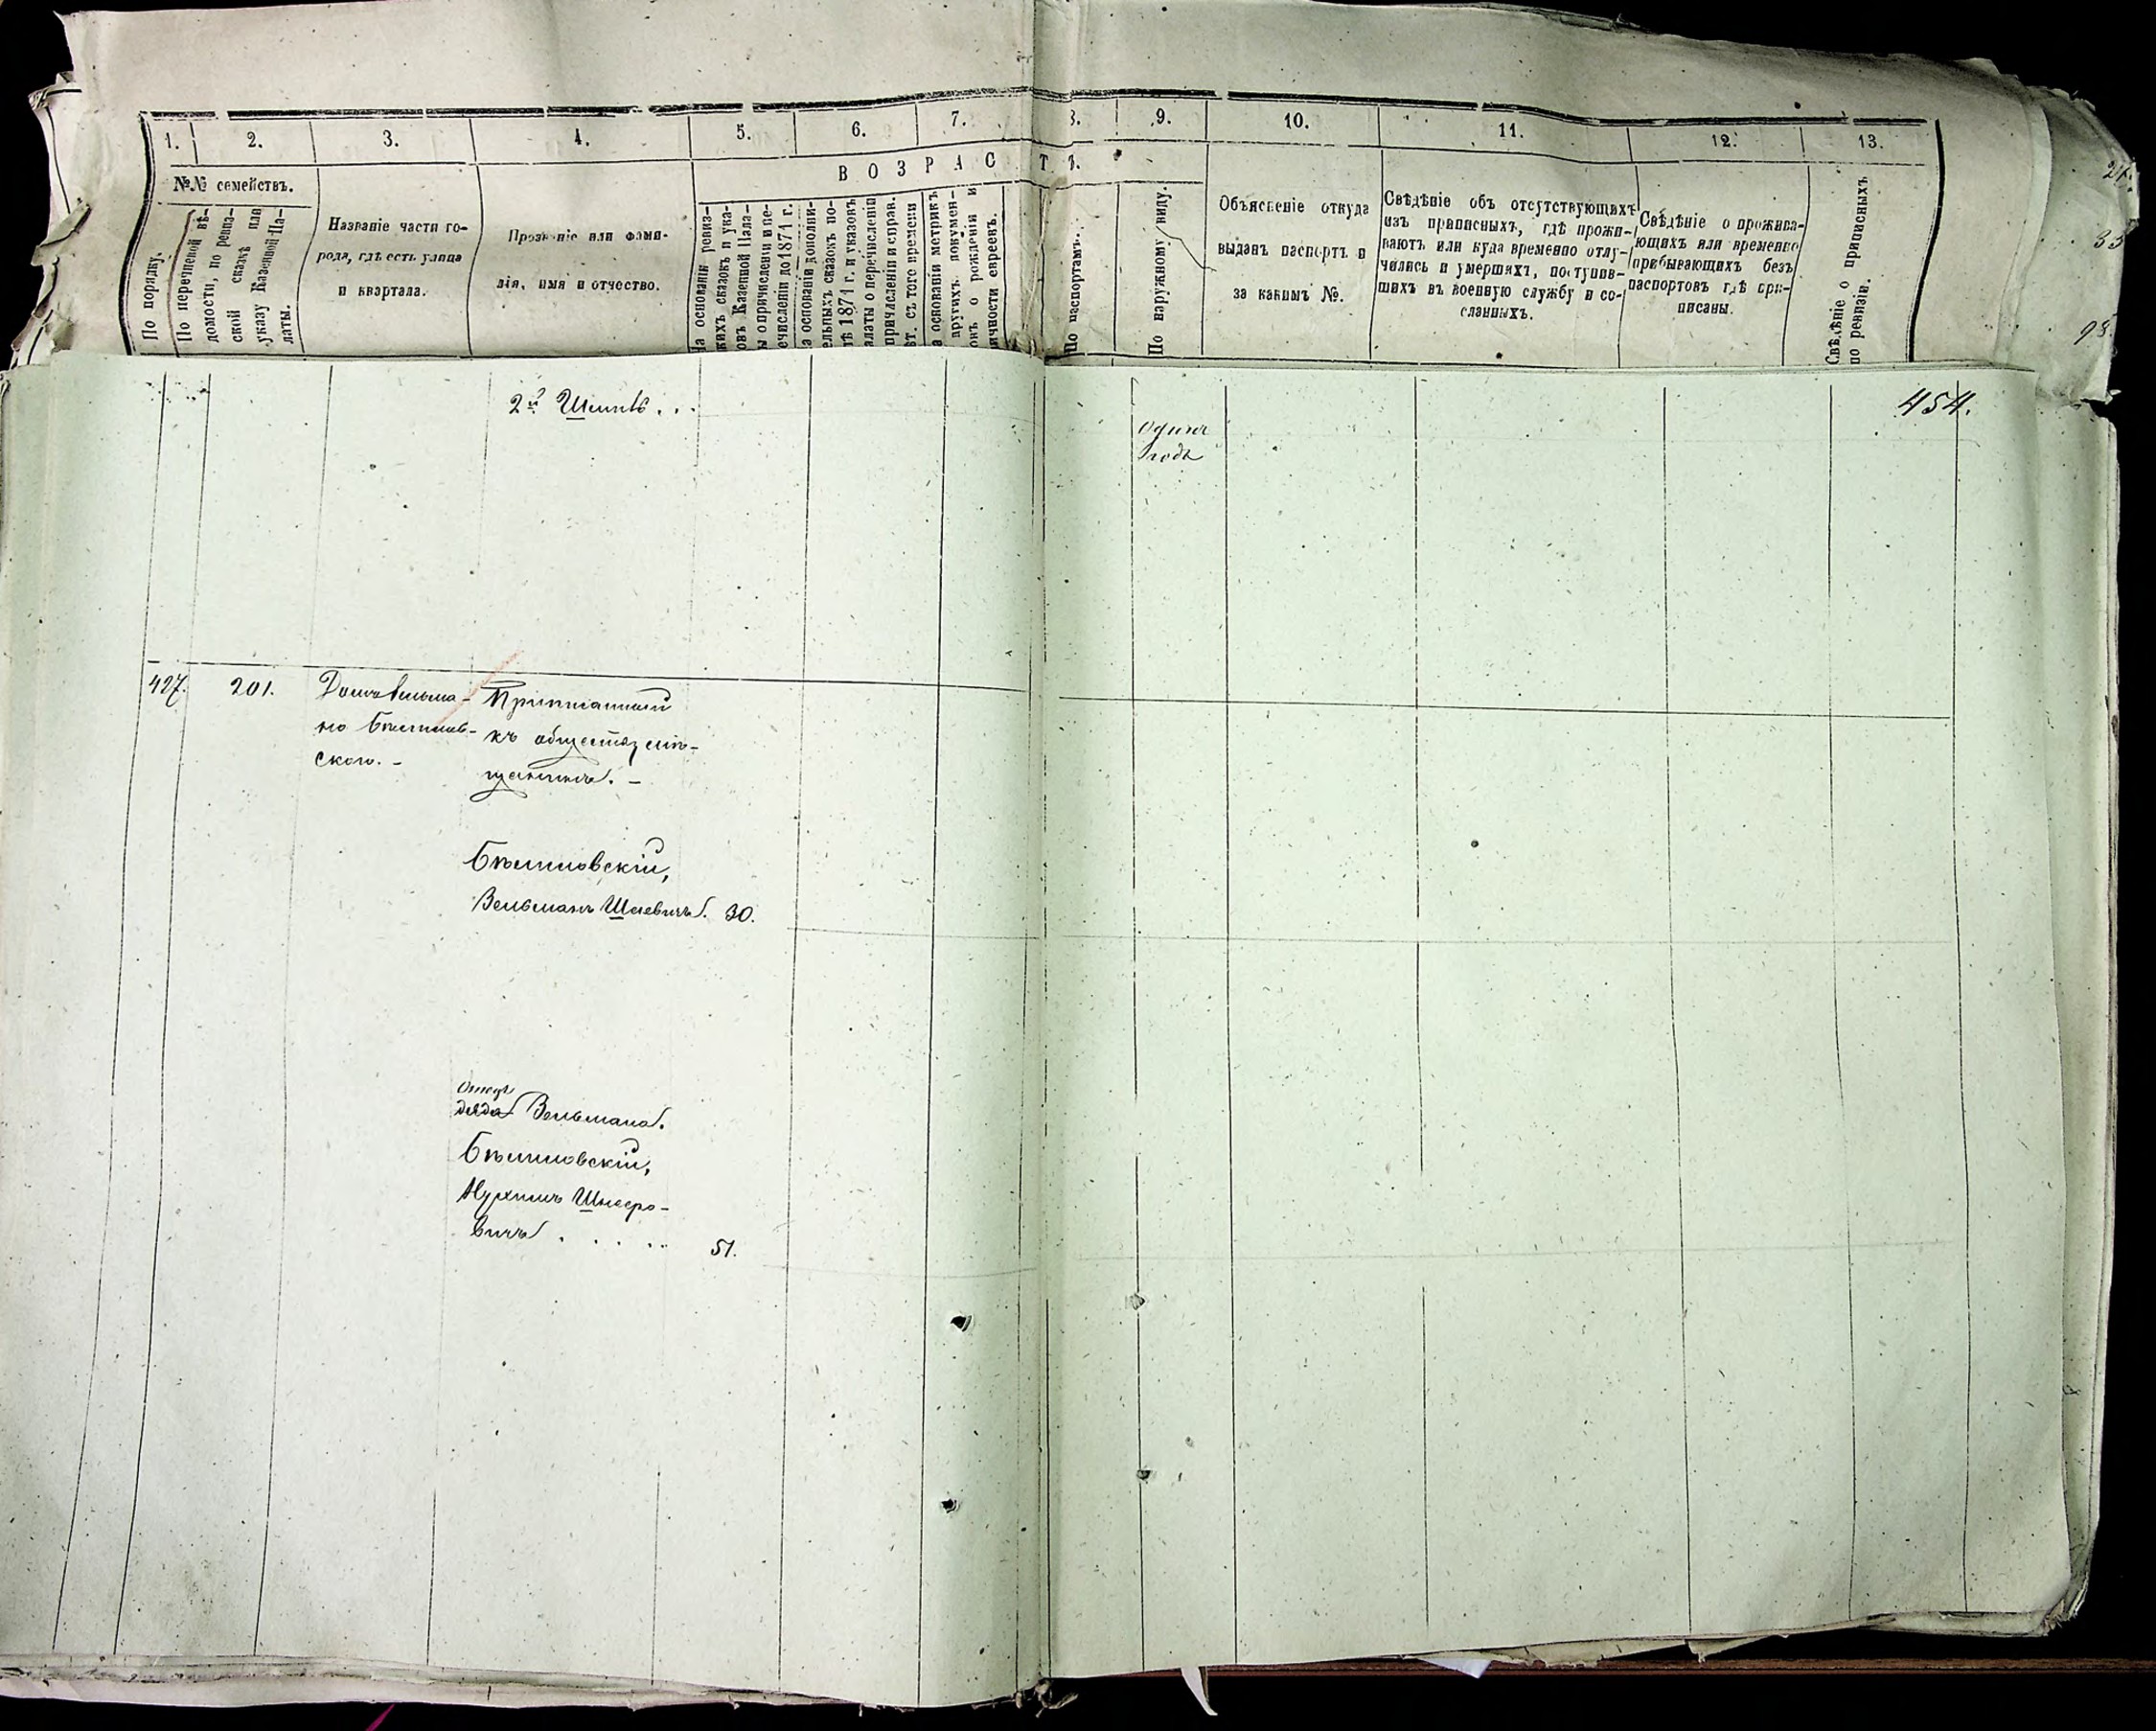 1. 2. 3. 4. 5. 6. 7. 8. 9. 10. 11. 12. 13.
№№ семействъ.
ВОЗРАСТЪ.
По порядку.
По перечневой вѣ-
домости, по ревиз-
ской сказкѣ или
указу Казенной Па-
латы.
Названіе части го-
рода, гдѣ есть улица
и квартала.
Прозваніе или фами-
лія, имя и отчество.
а основаніи ревиз-
кихъ сказокъ и ука-
овъ Казенной Пала-
ы о причисленіи и пе-
ечисленіи до 1871 г.
а основаніи дополни-
ельныхъ сказокъ по-
лѣ 1871 г. и указовъ
алаты о перечисленіи
причисленіи и справ.
вт. съ того времени
а основаніи метрикъ
другихъ докумен-
онъ о рожденіи и
ичности евреевъ.
По паспортамъ.
По наружному виду.
Объясненіе откуда
выданъ паспортъ и
за какимъ №.
Свѣдѣніе объ отсутствующихъ
изъ приписныхъ, гдѣ прожи-
ваютъ или куда временно отлу-
чились и умершихъ, поступив-
шихъ въ военную службу и со-
сланныхъ.
Свѣдѣніе о прожива-
ющихъ или временно
прибывающихъ безъ
паспортовъ гдѣ при-
писаны.
Свѣдѣніе о приписныхъ
по ревизіи.
454.
2й . . .
Одинъ
годъ
427. 201.
Приписанный
къ обществу мѣ-
щанинъ. –
ского. –
Вельманъ Шаевичъ. 30.
Отецъ
дяда Вельмана.
Шнееро-
вичъ . . . . . 51.